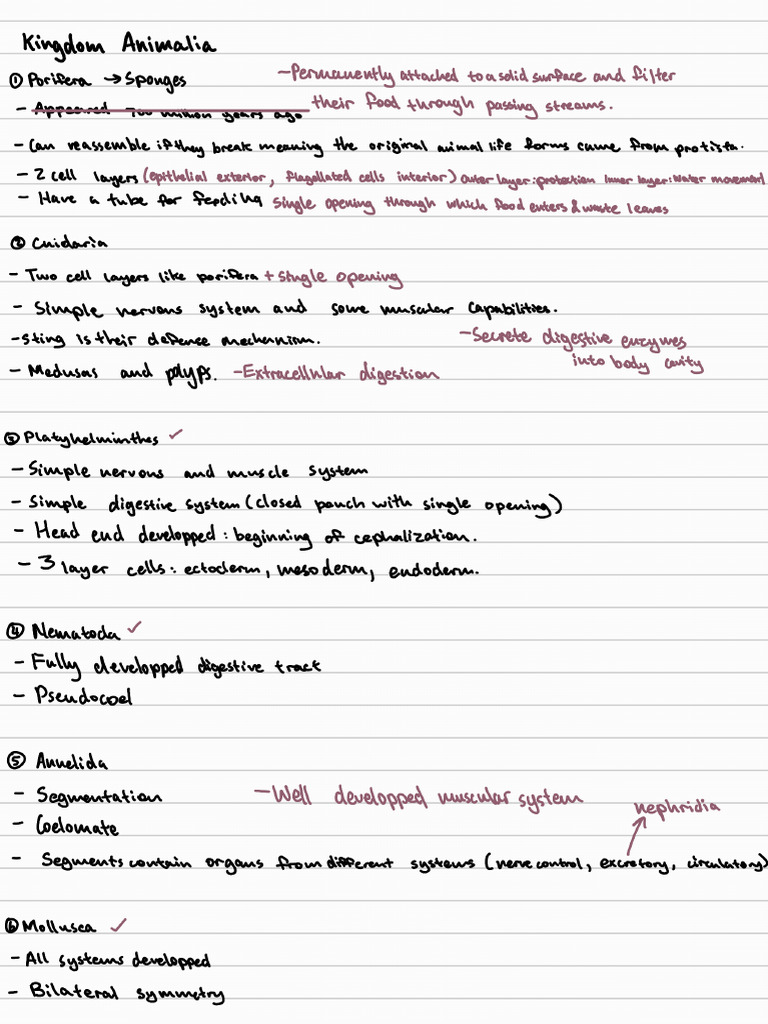 Kingdom Animalia
① Porifera → Sponges
- Permanently attached to a solid surface and filter
their food through passing streams.
- Appeared 700 million years ago
- Can reassemble if they break meaning the original animal life forms came from protista.
- 2 cell layers (epithelial exterior, flagellated cells interior) outer layer: protection inner layer: water movement
- Have a tube for feeding single opening through which food enters & waste leaves
② Cnidaria
- Two cell layers like porifera + single opening
- Simple nervous system and some muscular capabilities.
- sting is their defense mechanism.
- Secrete digestive enzymes
into body cavity
- Medusas and polyps. - Extracellular digestion
③ Platyhelminthes ✓
- Simple nervous and muscle system
- Simple digestive system (closed pouch with single opening)
- Head end developped: beginning of cephalization.
- 3 layer cells: ectoderm, mesoderm, endoderm.
④ Nematoda ✓
- Fully developped digestive tract
- Pseudocoel
⑤ Annelida
- Segmentation - Well developped muscular system
nephridia
- Coelomate
- Segments contain organs from different systems (nerve control, excretory, circulatory)
⑥ Mollusca ✓
- All systems developped
- Bilateral symmetry